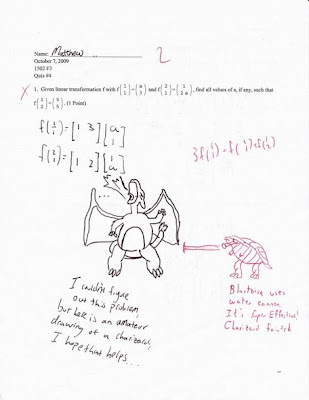 Name: Matthew
2
October 7, 2009
1502 F3
Quiz #4
X 1. Given linear transformation f with f(1 1) = (a 3) and f(2 1) = (1 2a), find all values of a, if any, such that
f(1 2) = (5 5). (1 Point)
f(1 1) = [1 3] [a 1]
3f(1 1) = f(2 1) + f(1 2)
f(2 1) = [1 2] [1 a]
I couldn't figure
out this problem,
but here is an amateur
drawing of a charizard,
I hope that helps...
Blastoise uses
water cannon
It's Super Effective!
Charizard fainted